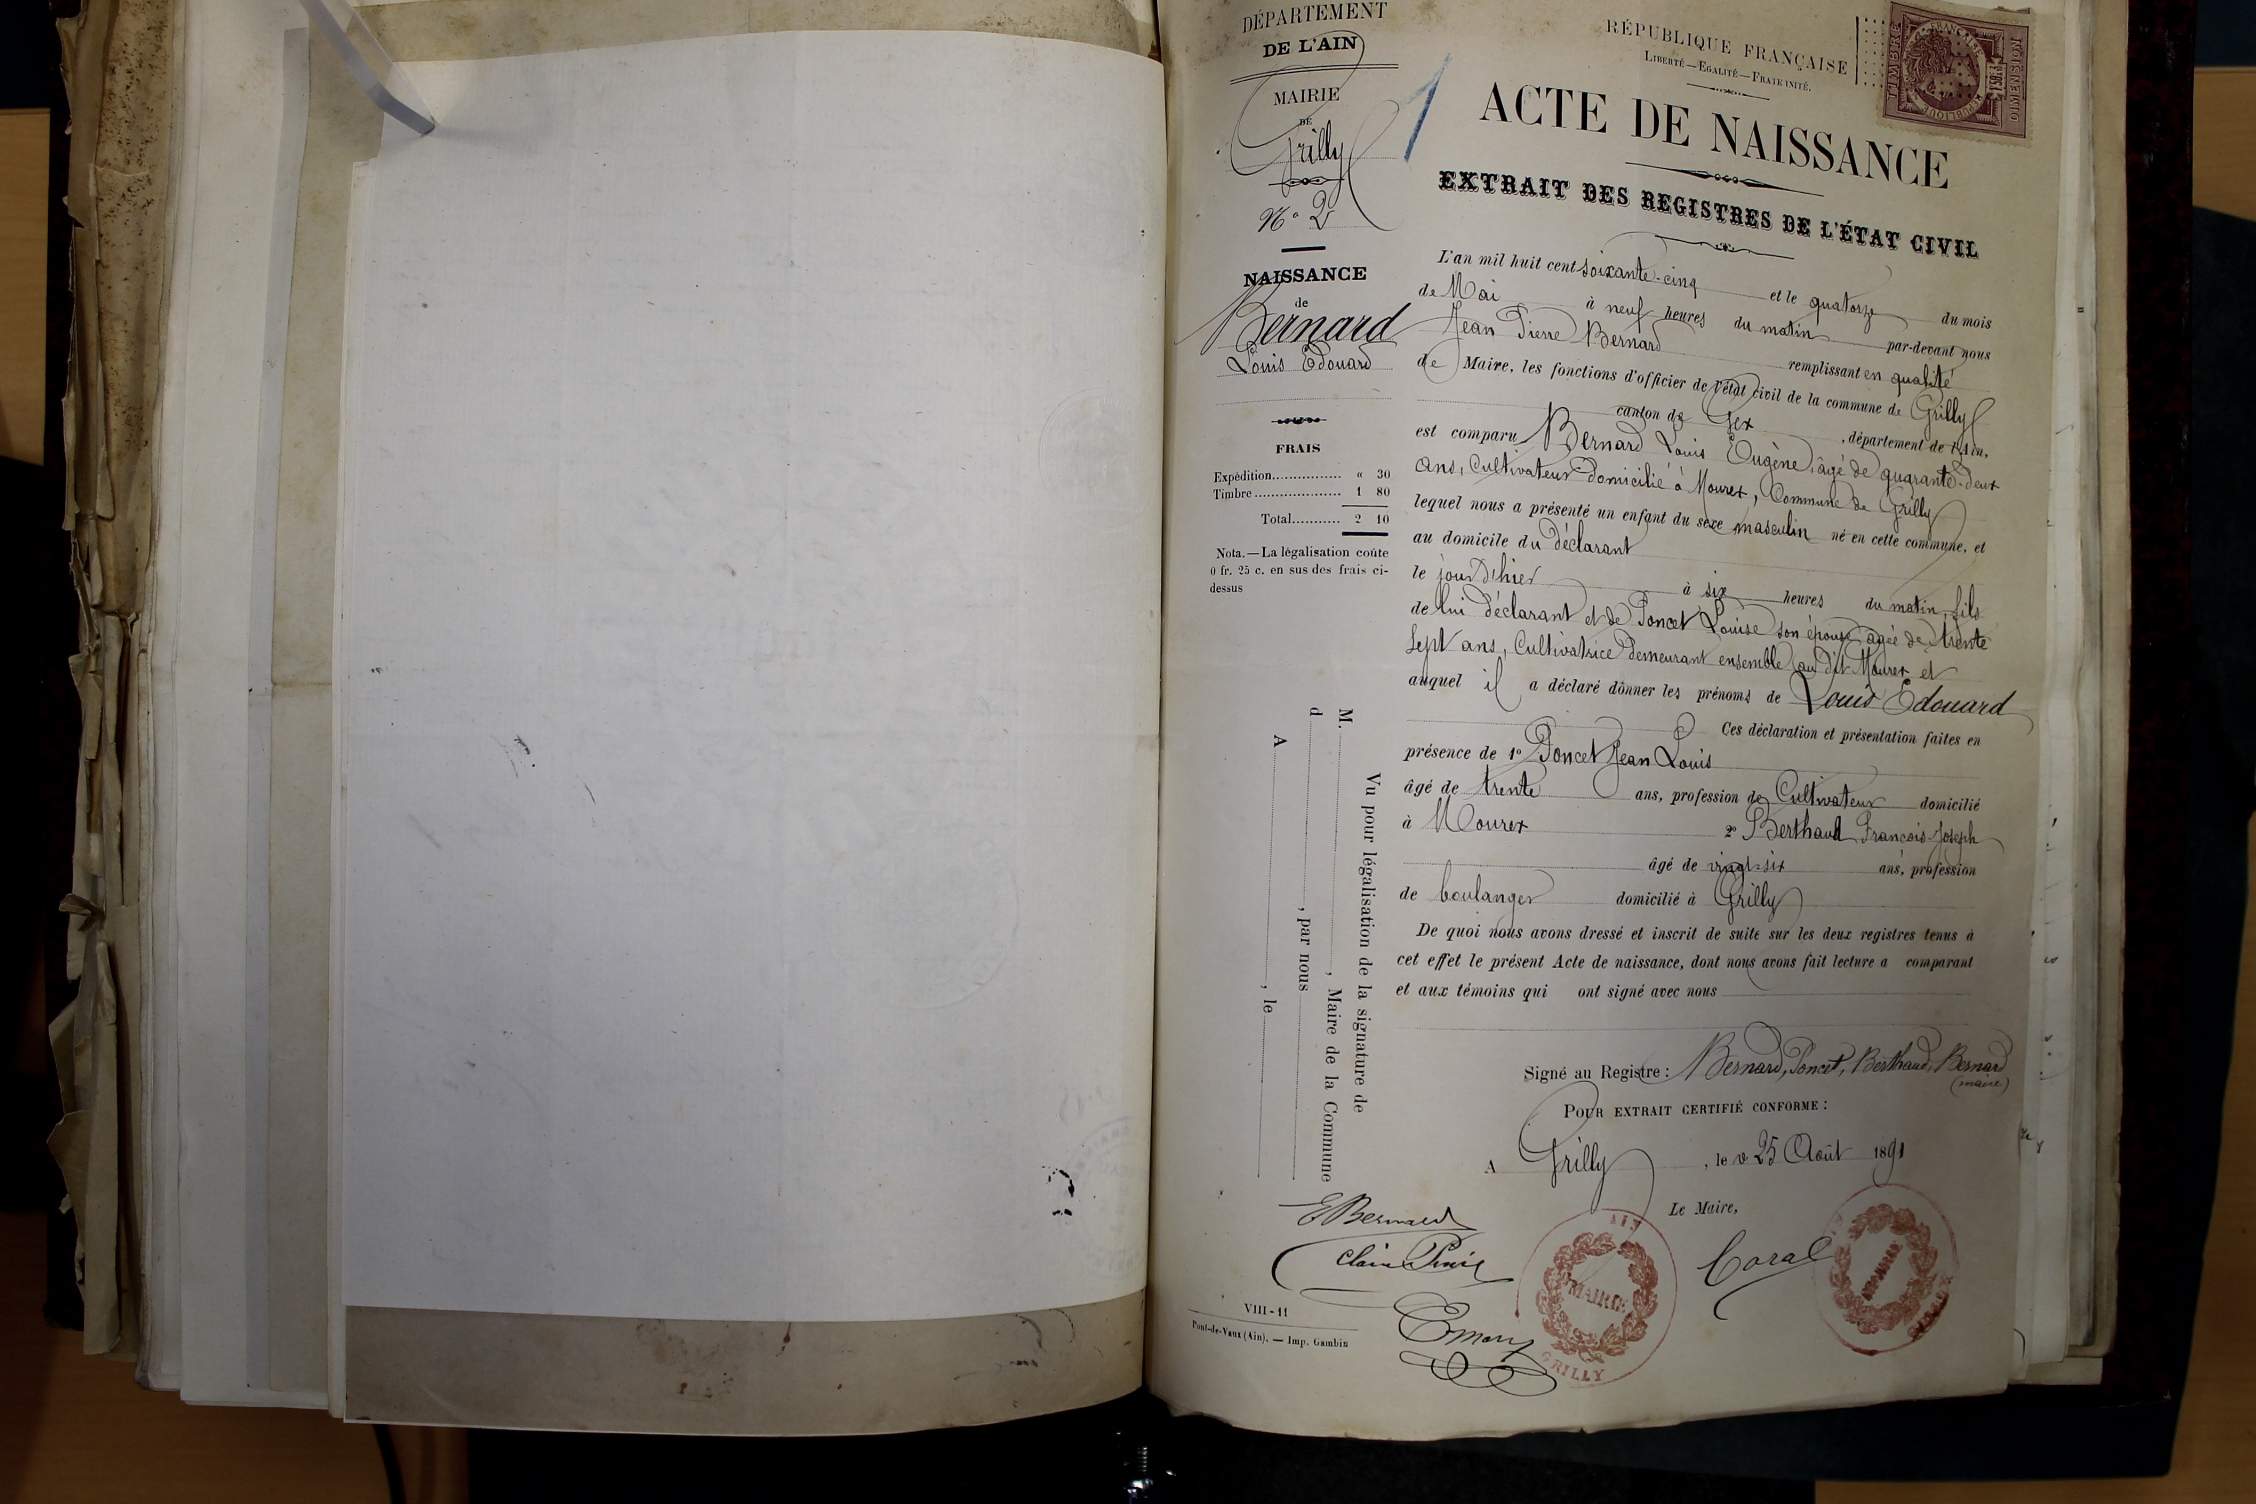 DÉPARTEMENT
DE L'AIN
MAIRIE
DE
Grilly
N° 2
NAISSANCE
de
Bernard
Louis Edouard
FRAIS
Expédition................ « 30
Timbre.................... 1 80
Total........... 2 10
Nota.—La légalisation coûte
0 fr. 25 c. en sus des frais ci-
dessus
Vu pour légalisation de la signature de
M. , Maire de la Commune
d , par nous
A , le
1
RÉPUBLIQUE FRANÇAISE
LIBERTÉ—EGALITÉ—FRATERNITÉ.
TIMBRE
DIMENSION
ACTE DE NAISSANCE
EXTRAIT DES REGISTRES DE L'ÉTAT CIVIL
L'an mil huit cent soixante-cinq et le quatorze du mois
de Mai à neuf heures du matin par-devant nous
Jean Pierre Bernard remplissant en qualité
de Maire, les fonctions d'officier de l'état civil de la commune de Grilly
canton de Gex , département de l'Ain,
est comparu Bernard Louis Eugène, âgé de quarante-deux
ans, Cultivateur domicilié à Mourex, Commune de Grilly
lequel nous a présenté un enfant du sexe masculin né en cette commune, et
au domicile du déclarant
le jour d'hier à six heures du matin, fils
de lui déclarant et de Poncet Louise son épouse âgée de trente
sept ans, Cultivatrice demeurant ensemble au dit Mourex et
auquel il a déclaré donner les prénoms de Louis Edouard
Ces déclaration et présentation faites en
présence de 1° Poncet Jean Louis
âgé de trente ans, profession de Cultivateur domicilié
à Mourex 2° Berthaud François Joseph
âgé de vingt-six ans, profession
de boulanger domicilié à Grilly
De quoi nous avons dressé et inscrit de suite sur les deux registres tenus à
cet effet le présent Acte de naissance, dont nous avons fait lecture a comparant
et aux témoins qui ont signé avec nous
Signé au Registre : Bernard, Poncet, Berthaud, Bernard
(maire)
POUR EXTRAIT CERTIFIÉ CONFORME :
A Grilly , le 25 Août 1891
Le Maire,
E Bernard
AIN
MAIRIE
GRILLY
VIII-11
Pont-de-Vaux (Ain). — Imp. Gambin